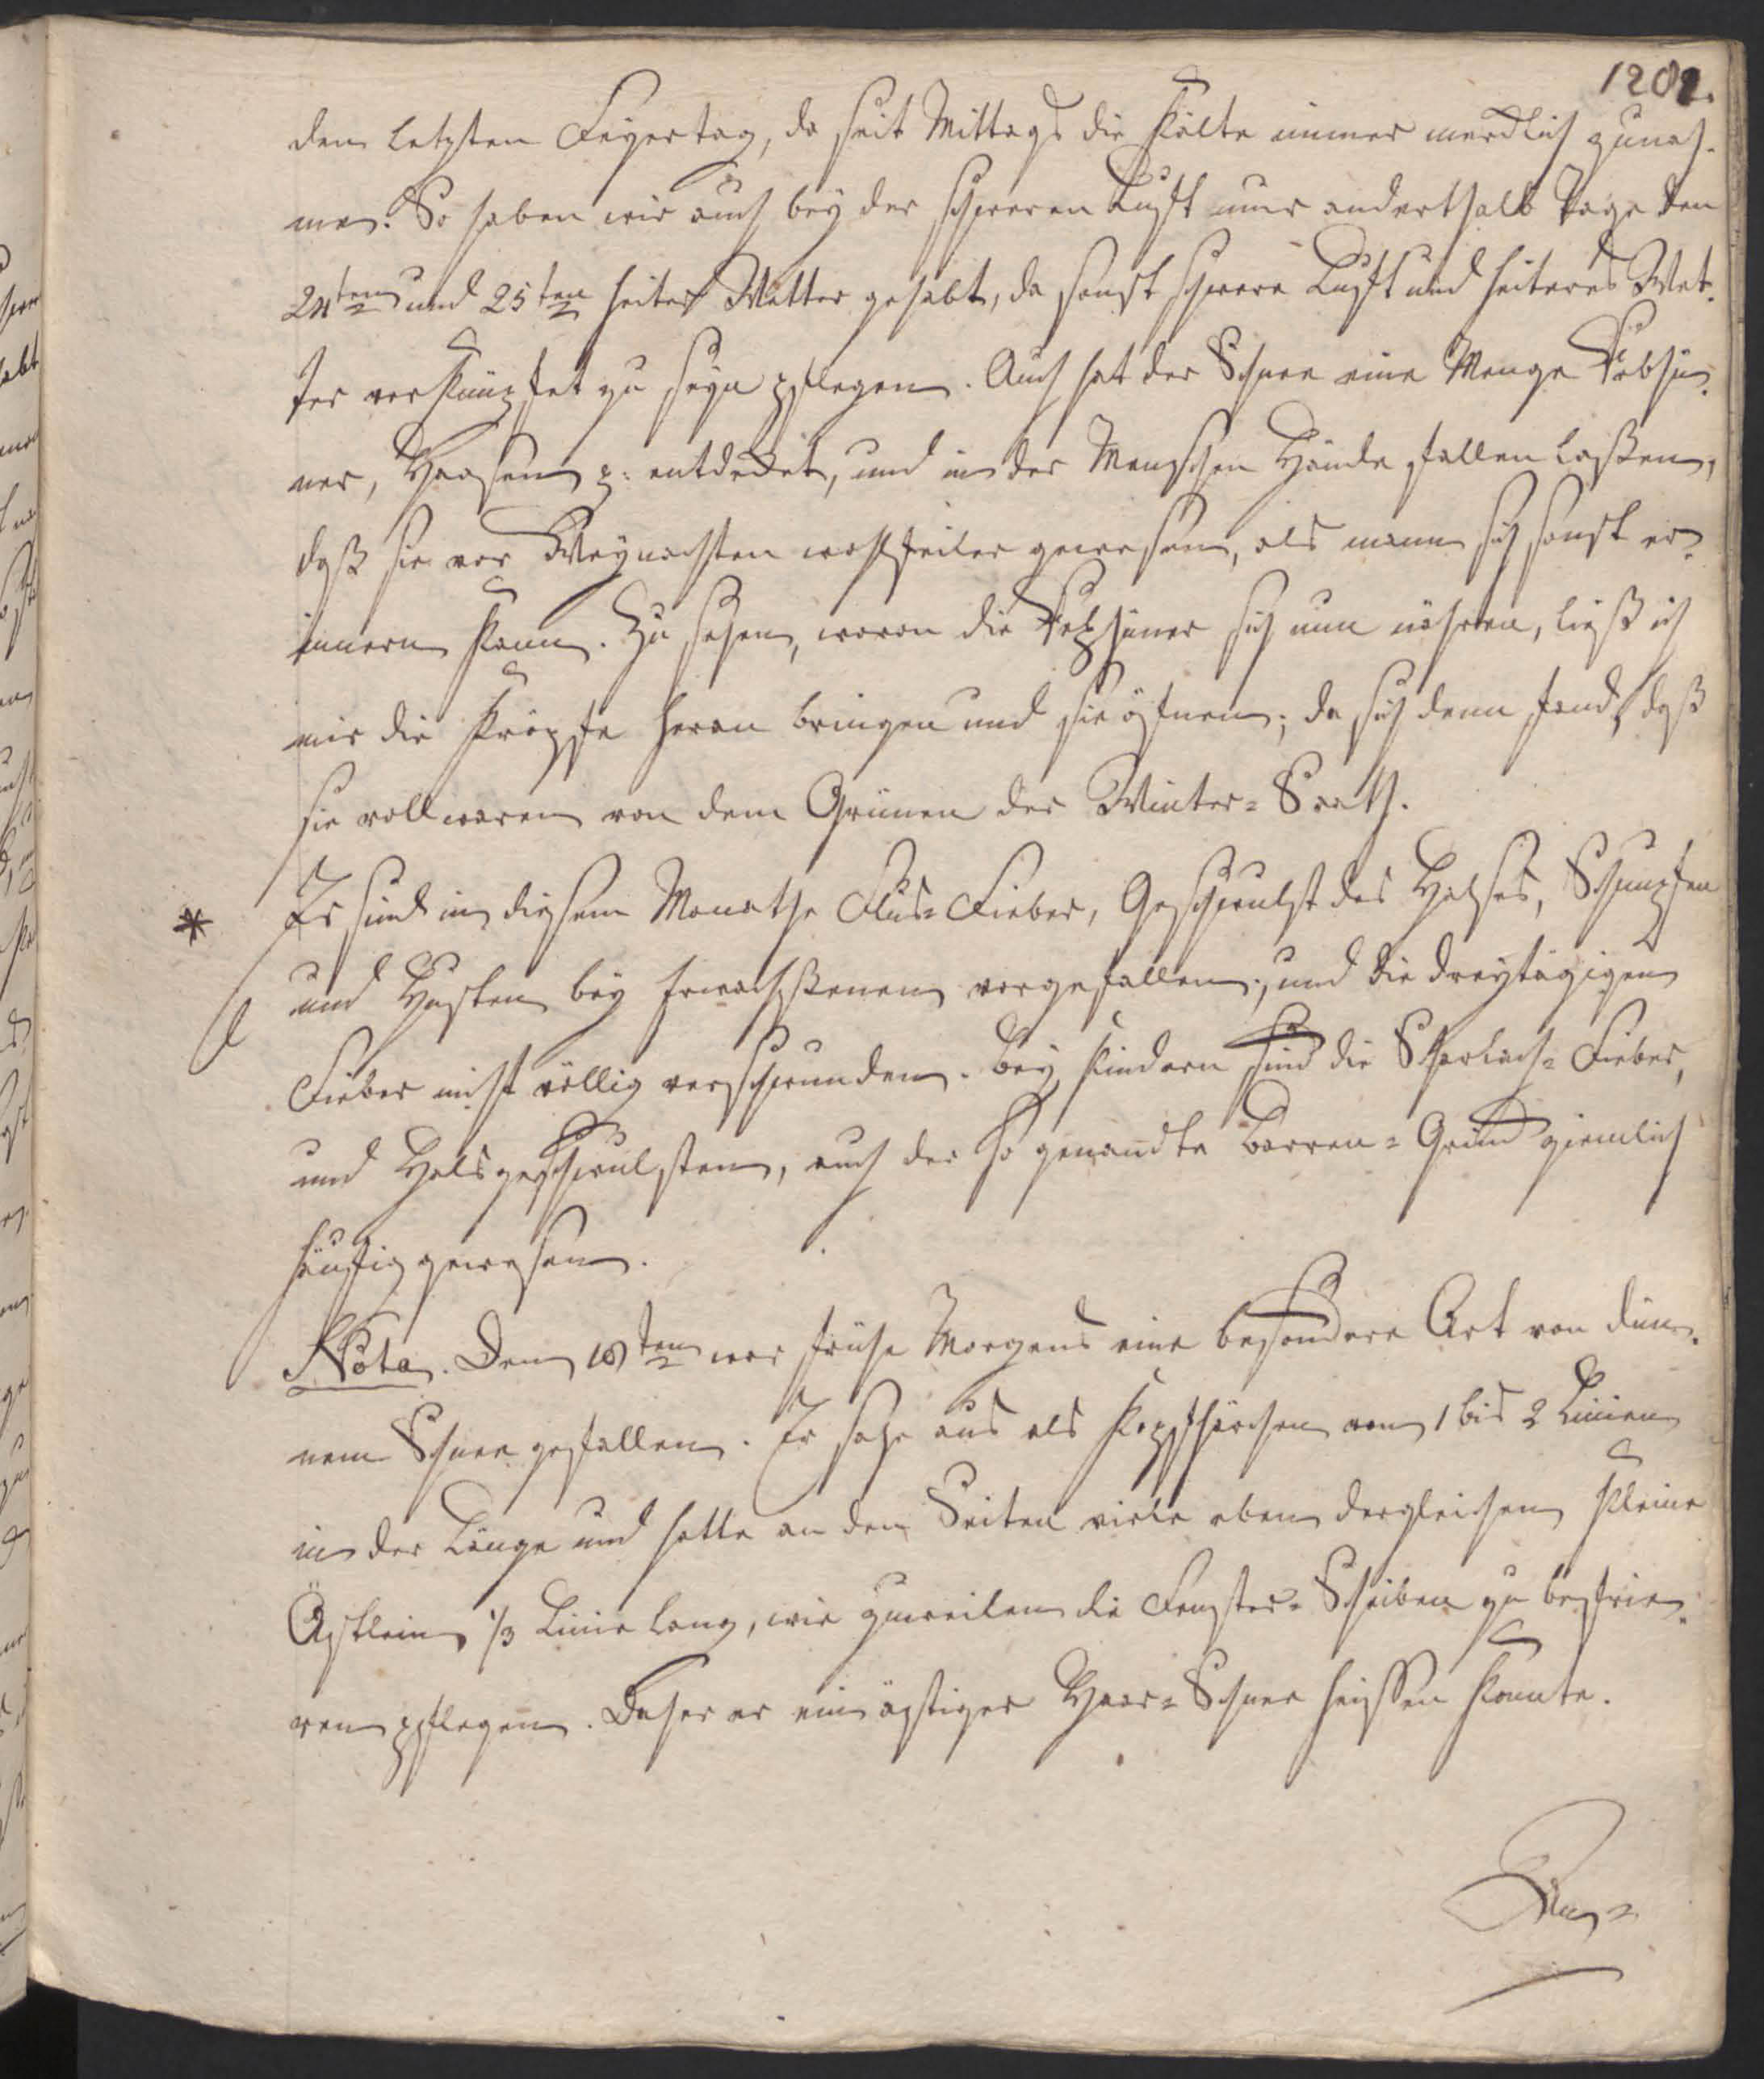 1202.
den letzten Feyertag, da seit Mittags die Kälte immer merklich zunah-
me. So haben wir auch bey der schweren Luft nur anderthalb Tage den
24ten und 25ten heiter Wetter gehabt, da sonst schwere Luft und heiteres Wet-
ter verknüpfet zu seyn pflegen. Auch hat der Schnee eine Menge Rebhü-
ner, Haasen p: entdecket, und in der Menschen Hände fallen laßen,
daß sie vor Weynachten wohlfeiler gewesen, als mann sich sonst er-
innern kann. Zu sehen, wovon die Rephüner sich nun nähren, ließ ich
mir die Kröpfe herau bringen und sie öfnen; da sich denn fand, daß
sie voll waren von dem Grünen der Winter-Saath.
* Es sind in diesem Monathe Flus-Fieber, Geschwulst des Halses, Schnupfen
und Husten bey Erwachßenen vorgefallen, und die dreytägigen
Fieber nicht völlig verschwunden. Bey Kindern sind die Scharlach-Fieber,
und Halsgeschwulsten, auch der so genandte Barren-Grind ziemlich
häufig gewesen.
Nota. Den 18ten war frühe Morgens eine besondere Art von dün-
nem Schnee gefallen. Er sahe aus als Kopfhärchen von 1 bis 2 Linien
in der Länge und hatte an den Seiten viele eben dergleichen kleine
Ästlein 1/3 Linie lang, wie zuweilen die Fenster-Scheiben zu befrie-
ren pflegen. Daher er ein ästiger Haar-Schnee heissen konnte.